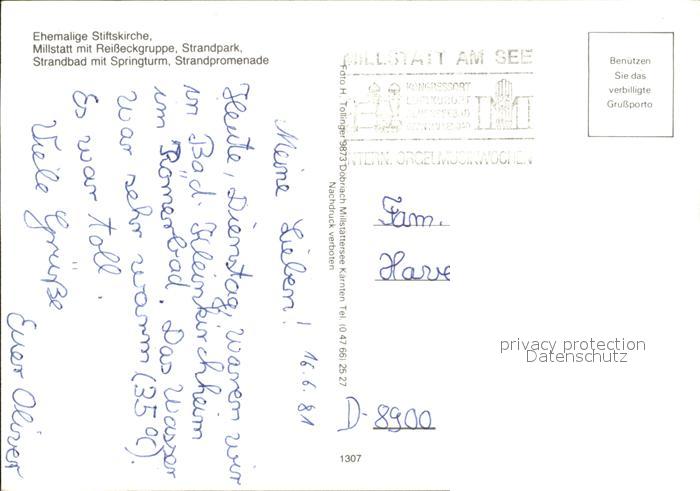 Ehemalige Stiftskirche,
Millstatt mit Reißeckgruppe, Strandpark,
Strandbad mit Springturm, Strandpromenade
Meine Lieben! 16.6.81
Heute, Dienstag, waren wir
in Bad Kleinkirchheim
im Römerbad. Das Wasser
war sehr warm (35°C).
Es war toll.
Viele Grüße
Euer Oliver
Foto H. Tollinger 9873 Döbriach Millstättersee Kärnten Tel. (0 47 66) 25 27
Nachdruck verboten
MILLSTATT AM SEE
KONGRESSORT
LUFTKURORT
INTERN. ORGELMUSIKWOCHEN
Benutzen
Sie das
verbilligte
Grußporto
Fam.
privacy protection
Datenschutz
D-8900
1307